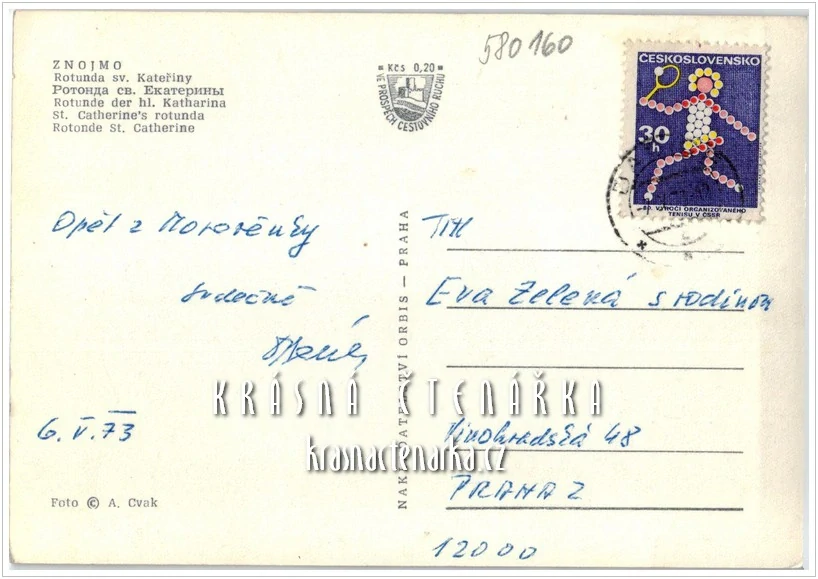 ZNOJMO
Rotunda sv. Kateřiny
Ротонда св. Екатерины
Rotunde der hl. Katharina
St. Catherine's rotunda
Rotonde St. Catherine
Kčs 0,20
VE PROSPĚCH CESTOVNÍHO RUCHU
580160
ČESKOSLOVENSKO
30 h
80. VÝROČÍ ORGANIZOVANÉHO
TENISU V ČSSR
Opět z Moravěnky
srdečně
6. V. 73
Foto © A. Cvak
NAKLADATELSTVÍ ORBIS — PRAHA
Eva Zelená s rodinou
Vinohradská 48
PRAHA 2
12000
KRÁSNÁ ČTENÁŘKA
krasnactenarka.cz